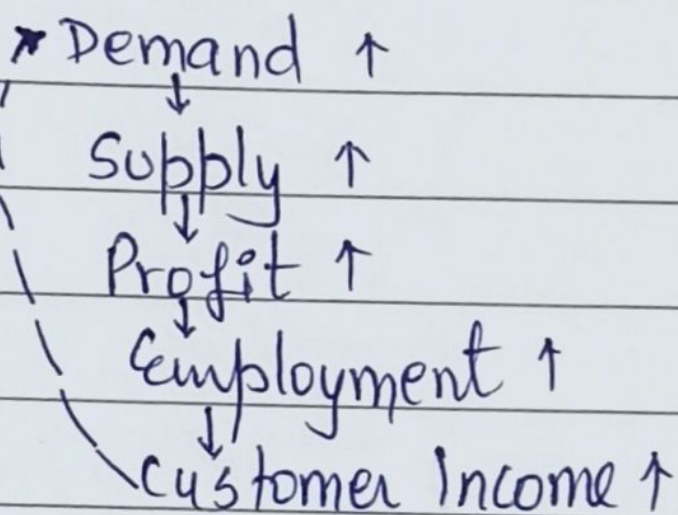 Demand ↑
↓
Supply ↑
↓
Profit ↑
↓
Employment ↑
↓
Customer Income ↑